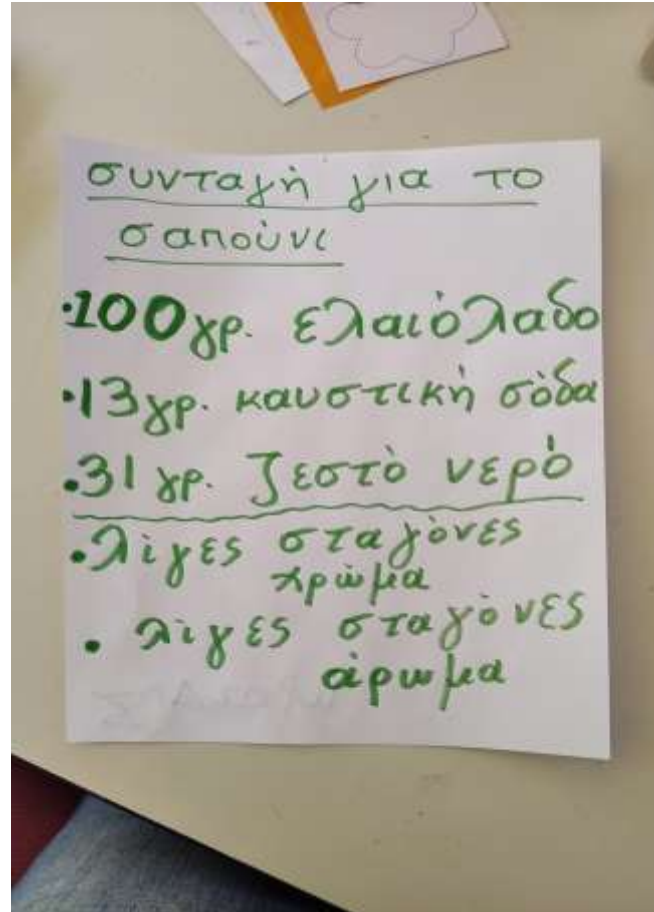 συνταγή για το
σαπούνι
•100γρ. ελαιόλαδο
•13γρ. καυστική σόδα
•31 γρ. ζεστό νερό
•λίγες σταγόνες
χρώμα
• λίγες σταγόνες
άρωμα